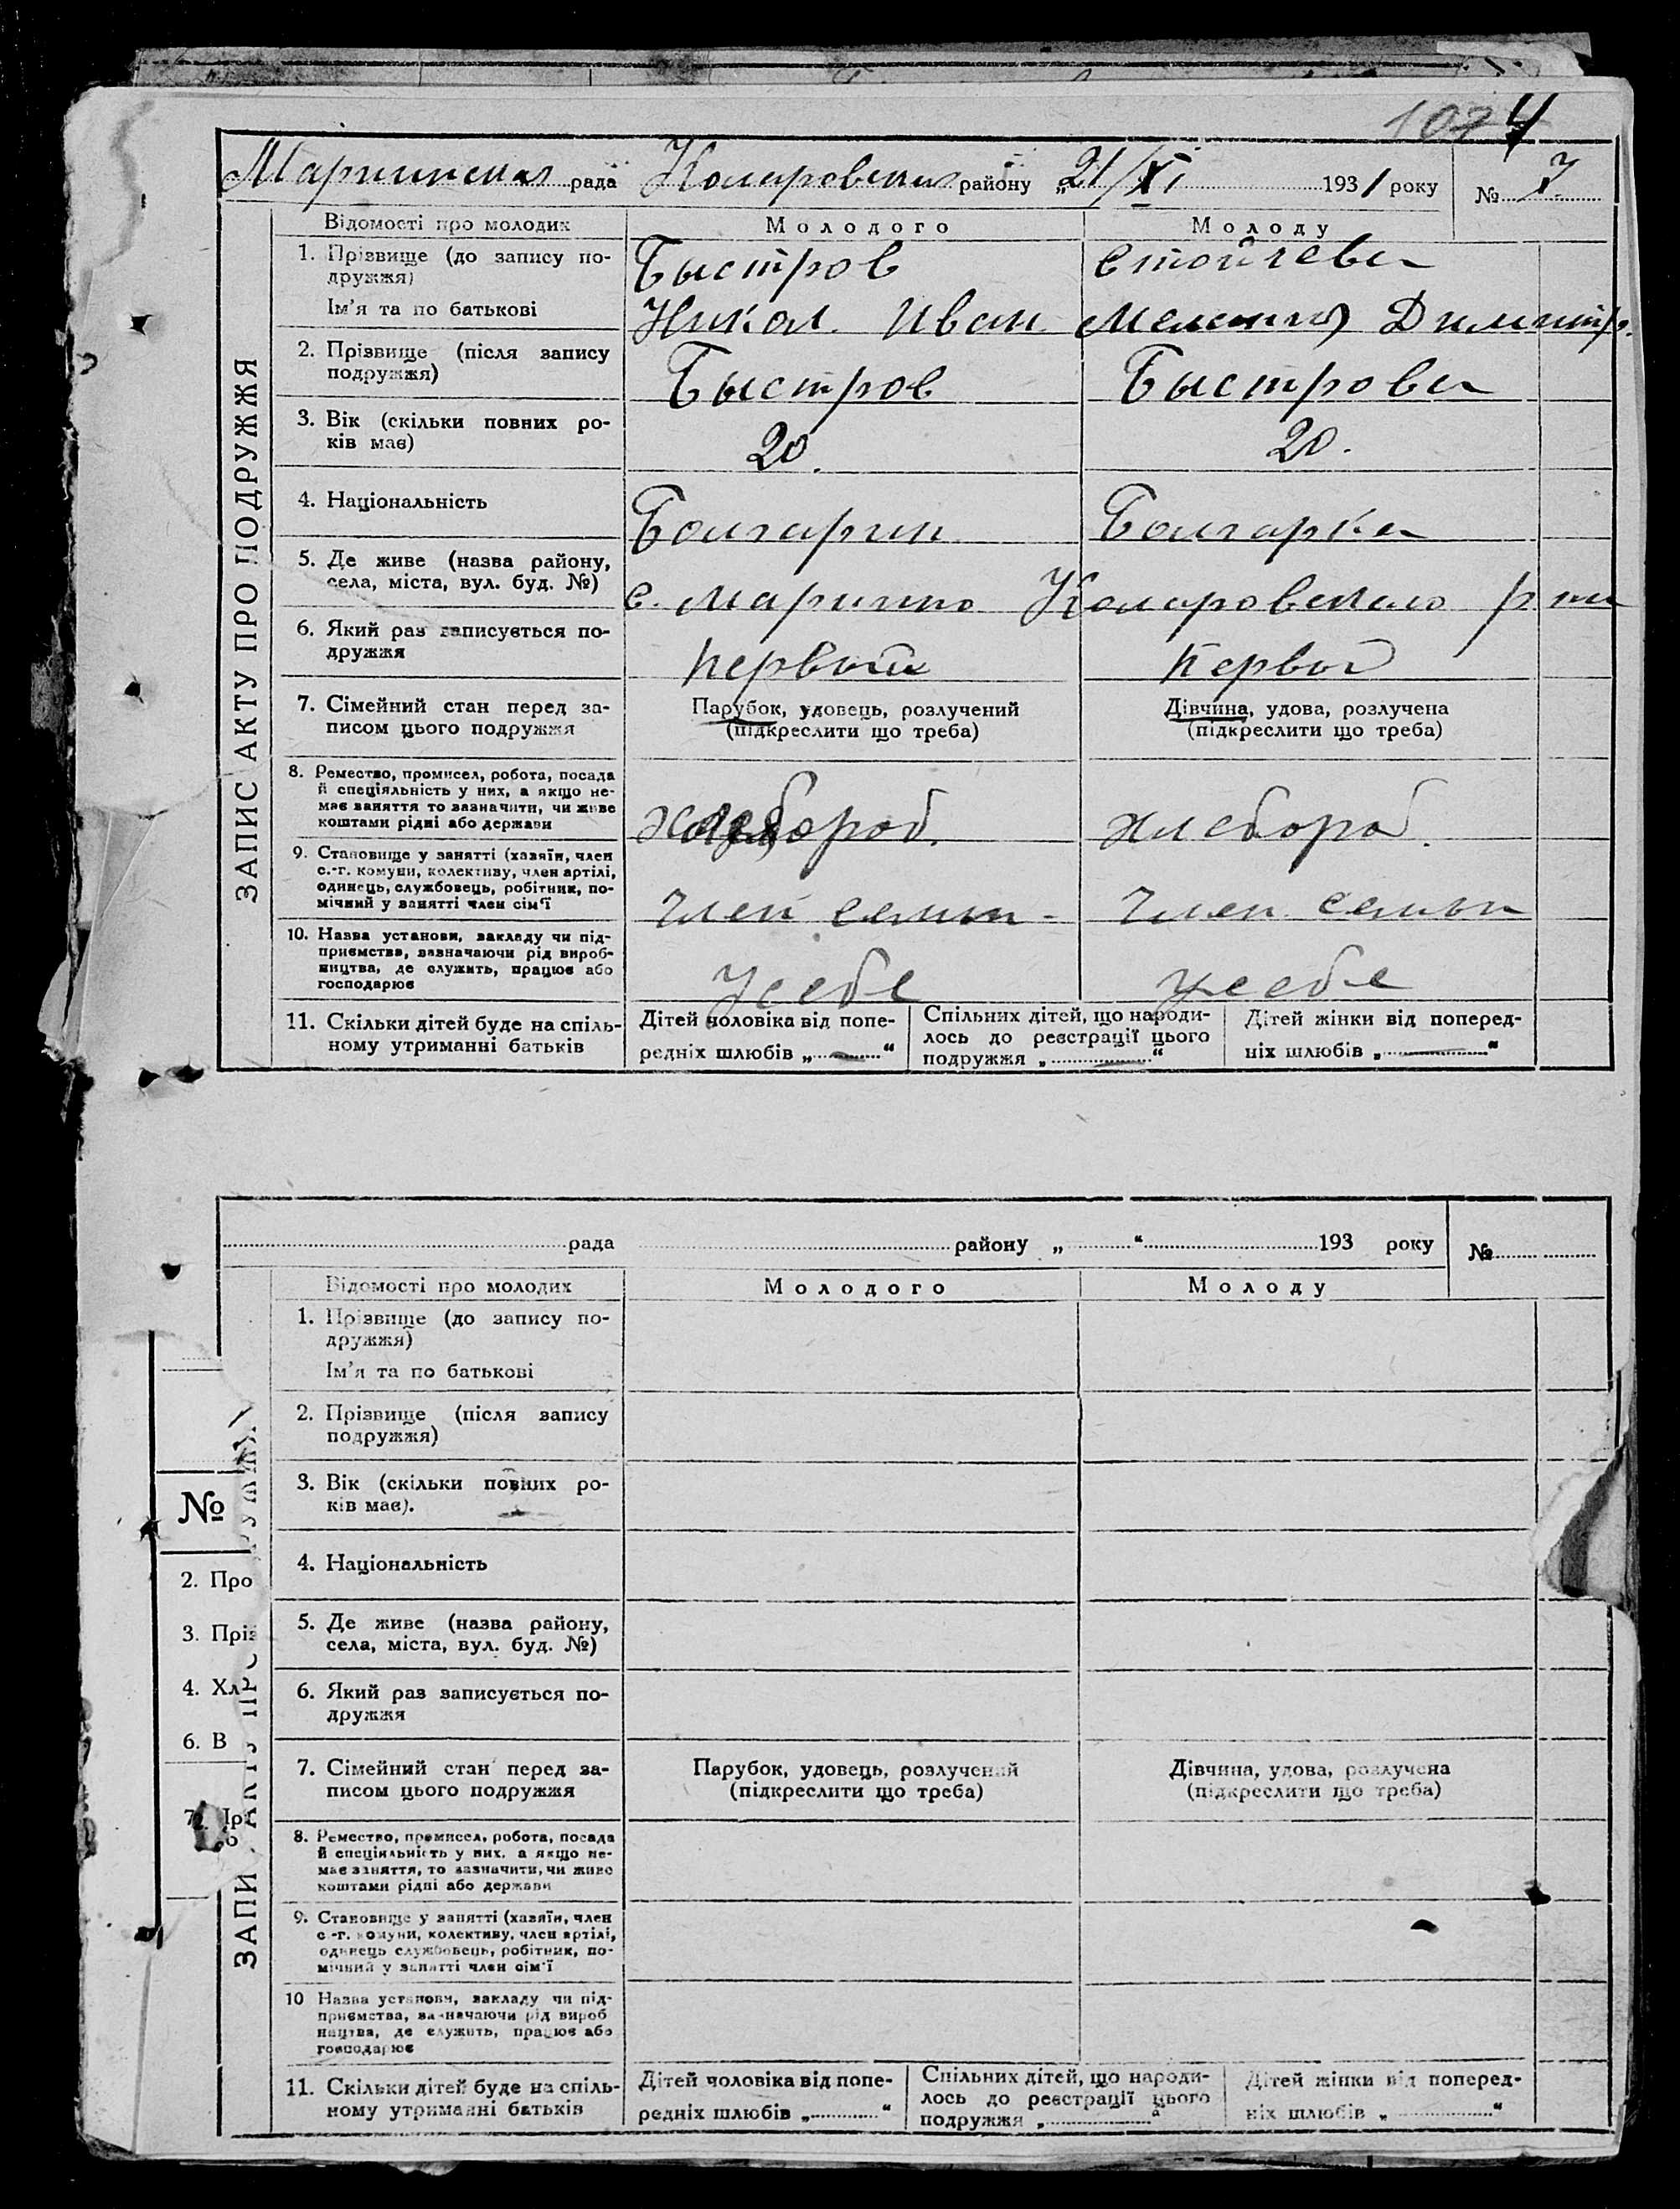 1074
Мариинская рада Коларовского району „21/XI 1931 року № 7.
Відомості про молодих Молодого Молоду
1. Прізвище (до запису по-
дружжя) Быстров Стойчева
Ім’я та по батькові Никол. Иван Димитр.
2. Прізвище (після запису
подружжя) Быстров Быстрова
3. Вік (скільки повних ро-
ків має) 20. 20.
4. Національність Болгарин Болгарка
5. Де живе (назва району,
села, міста, вул. буд. №) с. Маринно Коларовского р на
6. Який раз записується по-
дружжя первый первый
7. Сімейний стан перед за- Парубок, удовець, розлучений Дівчина, удова, розлучена
писом цього подружжя (підкреслити що треба) (підкреслити що треба)
8. Ремество, промисел, робота, посада
й спеціяльність у них, а якщо не-
має заняття то зазначити, чи живе
коштами рідні або держави хлебороб. хлебороб.
9. Становище у занятті (хазяїн, член
с.-г. комуни, колективу, член артілі,
одинець, службовець, робітник, по-
мічний у занятті член сім’ї член семьи член семьи
10. Назва установи, закладу чи під-
приємства, зазначаючи рід вироб-
ництва, де служить, працює або
господарює У себе у себе
11. Скільки дітей буде на спіль-
ному утриманні батьків
Дітей чоловіка від попе-
редніх шлюбів „—“
Спільних дітей, що народи-
лось до реєстрації цього
подружжя „—“
Дітей жінки від поперед-
ніх шлюбів „—“
ЗАПИС АКТУ ПРО ПОДРУЖЖЯ
рада району „ “ 193 року №
Відомості про молодих Молодого Молоду
1. Прізвище (до запису по-
дружжя)
Ім’я та по батькові
2. Прізвище (після запису
подружжя)
3. Вік (скільки повних ро-
ків має).
4. Національність
5. Де живе (назва району,
села, міста, вул. буд. №)
6. Який раз записується по-
дружжя
7. Сімейний стан перед за- Парубок, удовець, розлучений Дівчина, удова, розлучена
писом цього подружжя (підкреслити що треба) (підкреслити що треба)
8. Ремество, промисел, робота, посада
й спеціяльність у них, а якщо не-
має заняття, то зазначити, чи живе
коштами рідні або держави
9. Становище у занятті (хазяїн, член
с.-г. комуни, колективу, член артілі,
одинець службовець, робітник, по-
мічний у занятті член сім’ї
10 Назва установи, закладу чи під-
приємства, зазначаючи рід вироб
ництва, де служить, працює або
господарює
11. Скільки дітей буде на спіль-
ному утриманні батьків
Дітей чоловіка від попе-
редніх шлюбів „ “
Спільних дітей, що народи-
лось до реєстрації цього
подружжя „ “
Дітей жінки від поперед-
ніх шлюбів „ “
ЗАПИ АКТУ ПРО
№
2. Про
3. Пріз
4. Хл
6. В